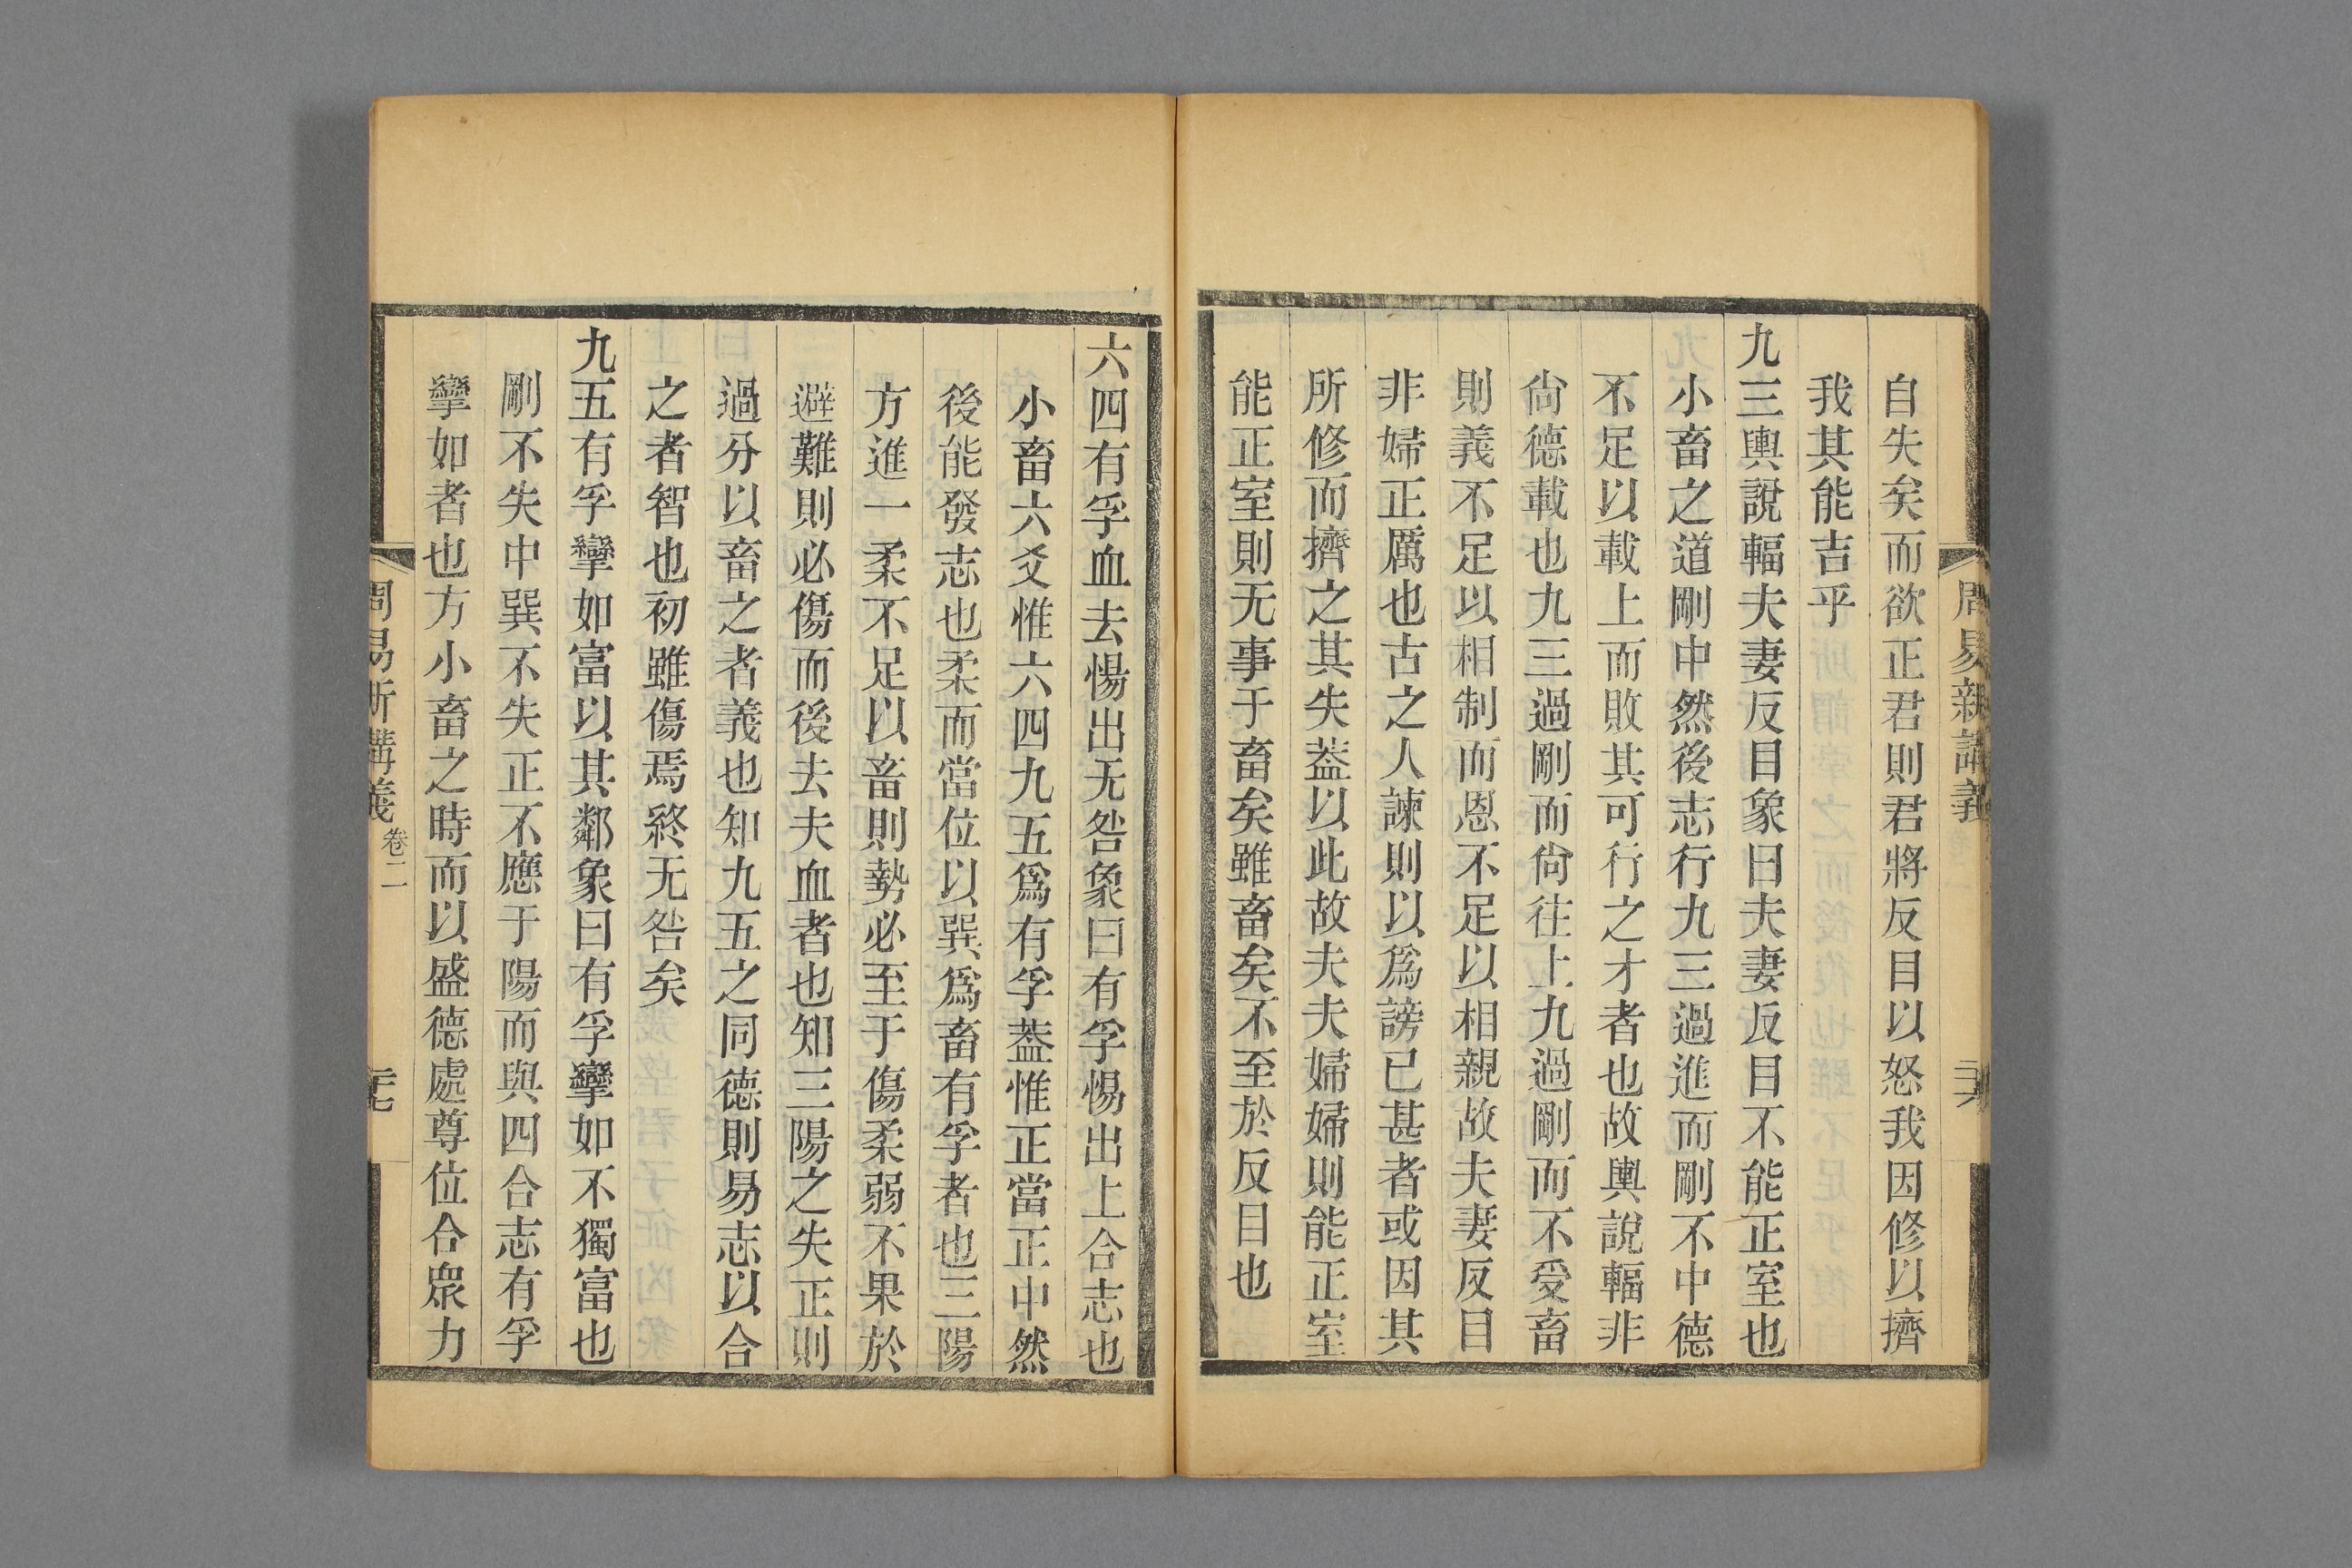 周易新講義
二十六
自失矣而欲正君則君將反目以怒我因修以擠
我其能吉乎
九三輿說輻夫妻反目象曰夫妻反目不能正室也
小畜之道剛中然後志行九三過進而剛不中德
不足以載上而敗其可行之才者也故輿說輻非
尙德載也九三過剛而尙往上九過剛而不受畜
則義不足以相制而恩不足以相親故夫妻反目
非婦正厲也古之人諫則以爲謗已甚者或因其
所修而擠之其失葢以此故夫夫婦婦則能正室
能正室則无事于畜矣雖畜矣不至於反目也
六四有孚血去惕出无咎象曰有孚惕出上合志也
小畜六爻惟六四九五爲有孚葢惟正當正中然
後能發志也柔而當位以巽爲畜有孚者也三陽
方進一柔不足以畜則勢必至于傷柔弱不果於
避難則必傷而後去夫血者也知三陽之失正則
過分以畜之者義也知九五之同德則易志以合
之者智也初雖傷焉終无咎矣
九五有孚攣如富以其鄰象曰有孚攣如不獨富也
剛不失中巽不失正不應于陽而與四合志有孚
攣如者也方小畜之時而以盛德處尊位合衆力
周易新講義
卷二
二十七